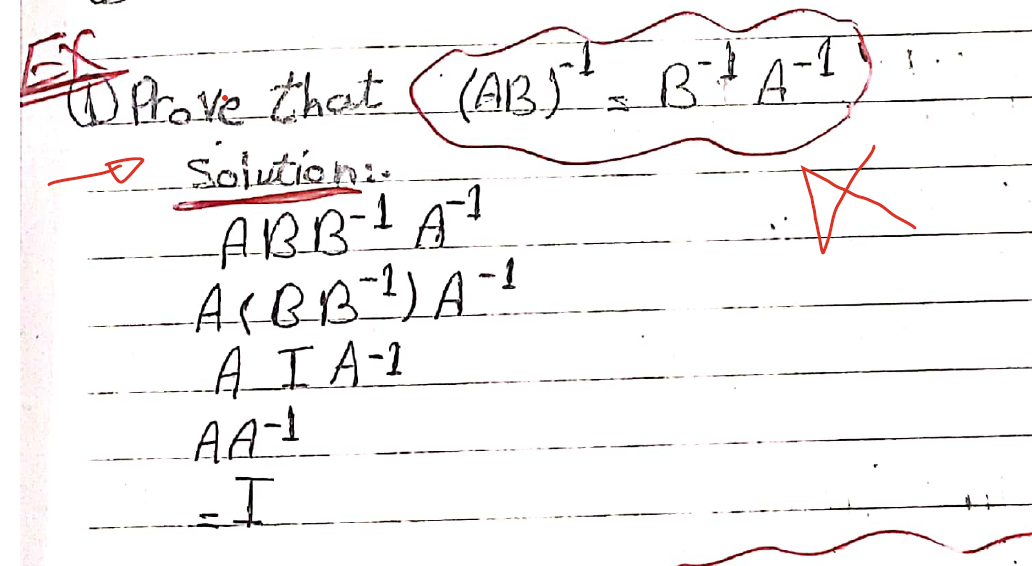 Ex
① Prove that (AB)⁻¹ = B⁻¹ A⁻¹
Solution:.
ABB⁻¹ A⁻¹
A(BB⁻¹)A⁻¹
A I A⁻¹
AA⁻¹
= I